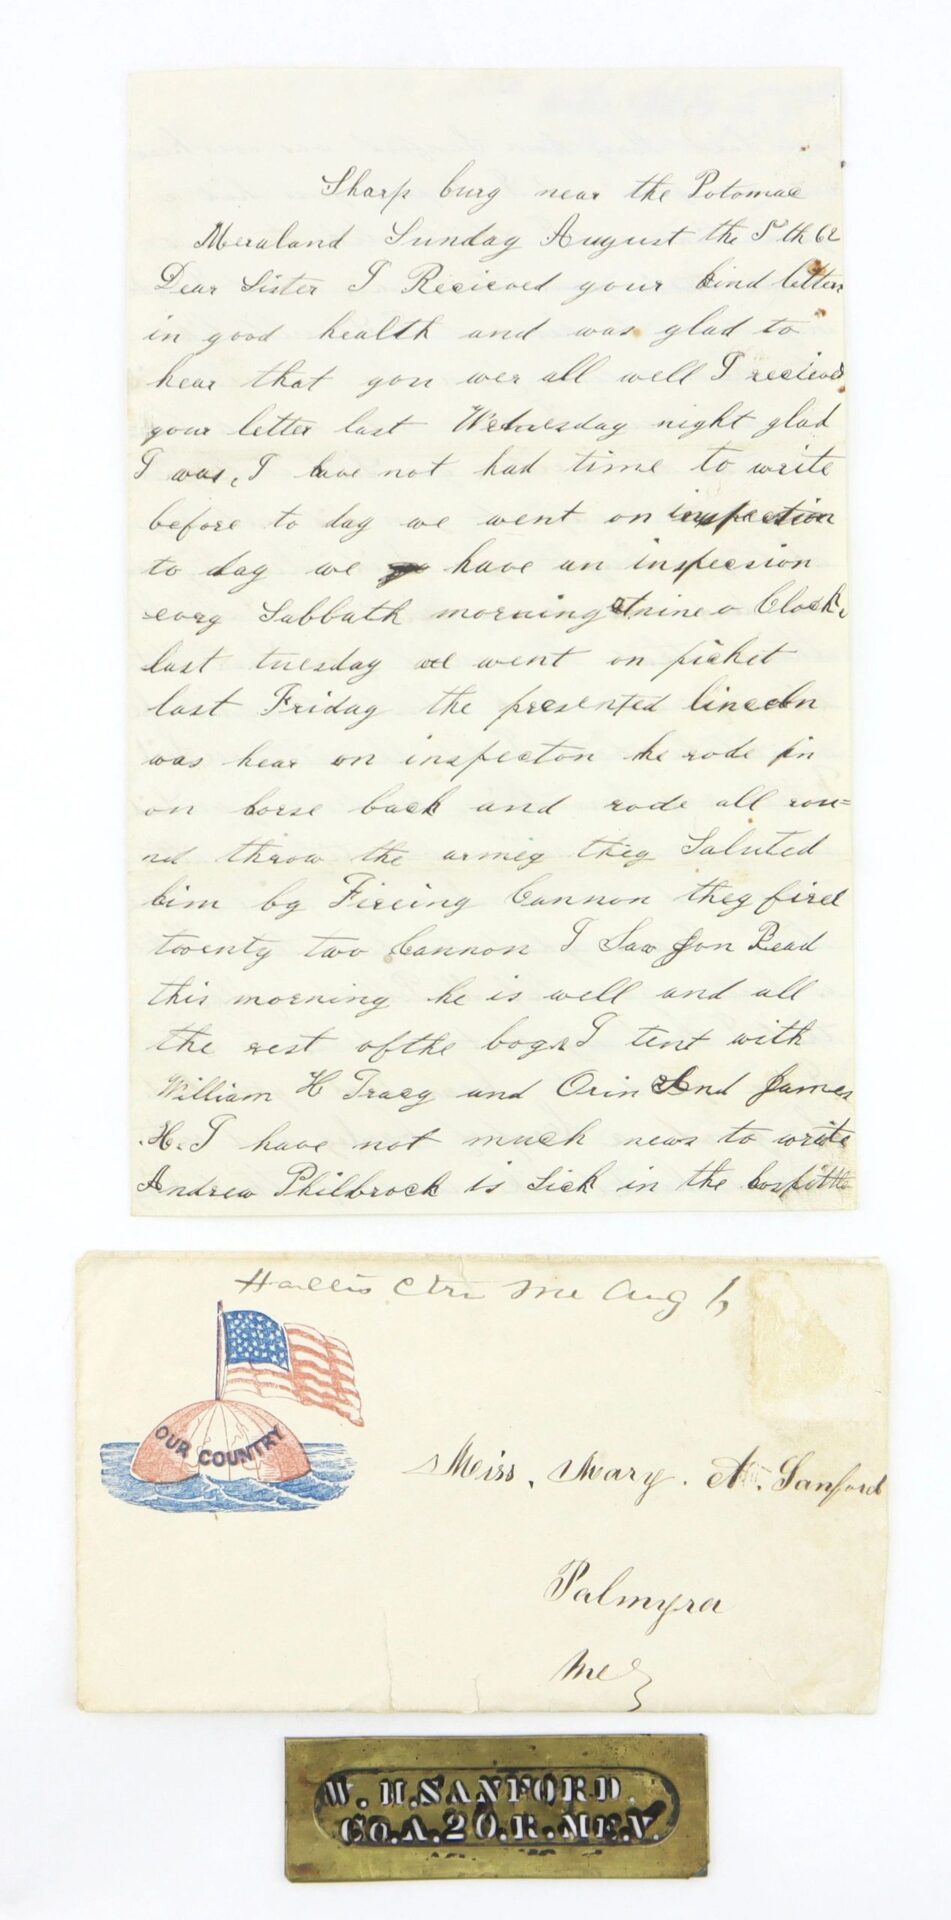 Sharp burg near the Potomac
Meraland Sunday August the 5th 62
Dear Sister I Recieved your kind letter
in good health and was glad to
hear that you wer all well I recieved
your letter last Wednesday night glad
I was, I have not had time to write
before to day we went on inspection
to day we have an inspecsion
evry Sabbath morning at nine o Clock,
last tuesday we went on picket
last Friday the presented lincoln
was hear on inspecton he rode in
on horse back and rode all rou=
nd throw the armey they Saluted
him by Fireing Cannon they fired
twenty two Cannon I Saw Jon Read
this morning he is well and all
the rest of the boys I tent with
William H Tracy and Orin And James
.H. I have not much news to write
Andrew Philbrock is Sick in the
Hallis Ctr Me Aug 6
OUR COUNTRY
Miss. Mary. A. Sanford
Palmyra
Me
W. H. SANFORD.
CO. A. 20. R. ME. V.